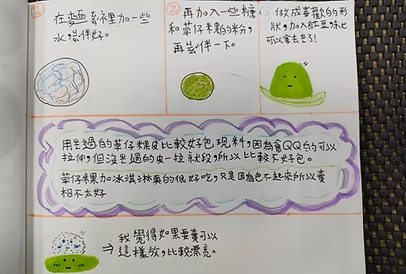 ①
在麵糰裡加一些
水,當伴好。
②
再加入一些糖
和草仔粿的粉,
再當伴一下。
做成喜歡的形
狀,加入紅豆,就也
可以拿去蒸了!
用半過的草仔粿皮比較好包現料,因為會QQ的可以
拉伸,但沒半過的皮一拉就段,所以比較不好包。
草仔粿加冰淇淋真的很好吃,只是因為包不起來所以賣
相不太好
⇒ 我覺得如果要賣可以
這樣放,比較漂亮。